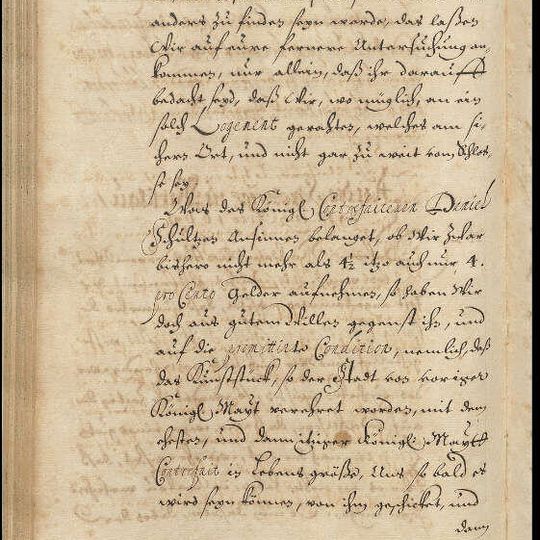 anders zu finden seyn werde, das laßen
Wir auf eure fernere Untersuchung an-
kommen, nur allein, daß ihr darauff
bedacht seyd, daß Wir, wo müglich, an ein
solch Logement gerahten, welches am si-
chern Ort, und nicht gar zu weit vom Schlos-
se sey.
Was des Königl Contrefaitenen Daniel
Schültzen Ansinnen belanget, ob Wir zwar
bishero nicht mehr als 4½ itzo auch nur 4.
pro Cento Gelder aufnehmen, so haben Wir
doch aus gutem Willen gegenst ihn, und
auf die promittirte Condition, nemlich, daß
das Kunststück, so der Stadt von voriger
Königl Mayt verehret worden, mit dem
ehesten, und dann itziger Königl: Maytt
Contrefait in Lebens größe, Uns so bald es
wird seyn können, von ihm geschicket, und
dann